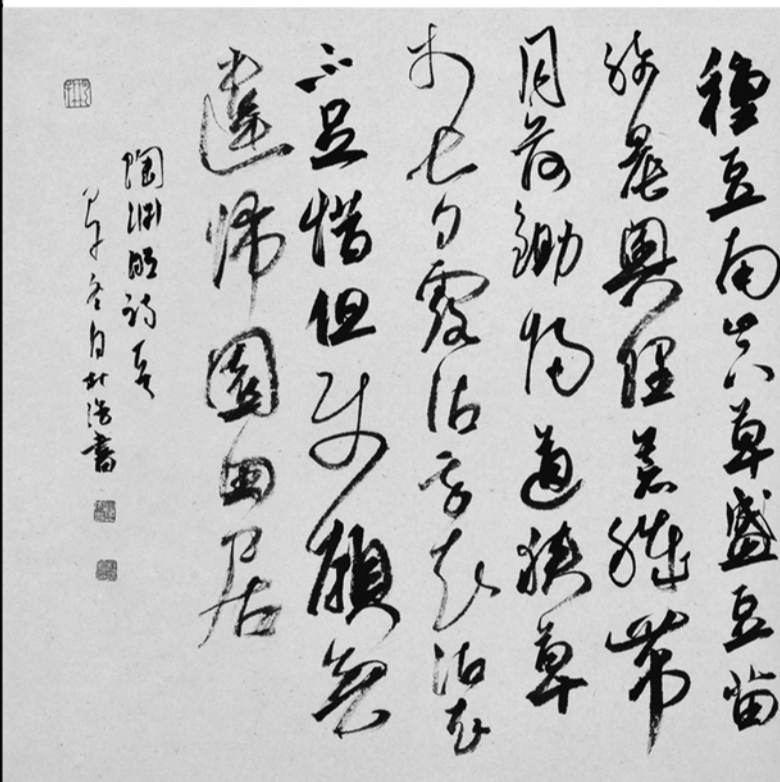 種豆南山下草盛豆苗
稀晨興理荒穢帶
月荷鋤歸道狹草
木長夕露沾我衣沾衣
不足惜但使願無
違歸園田居
陶淵明詩一首
冬書